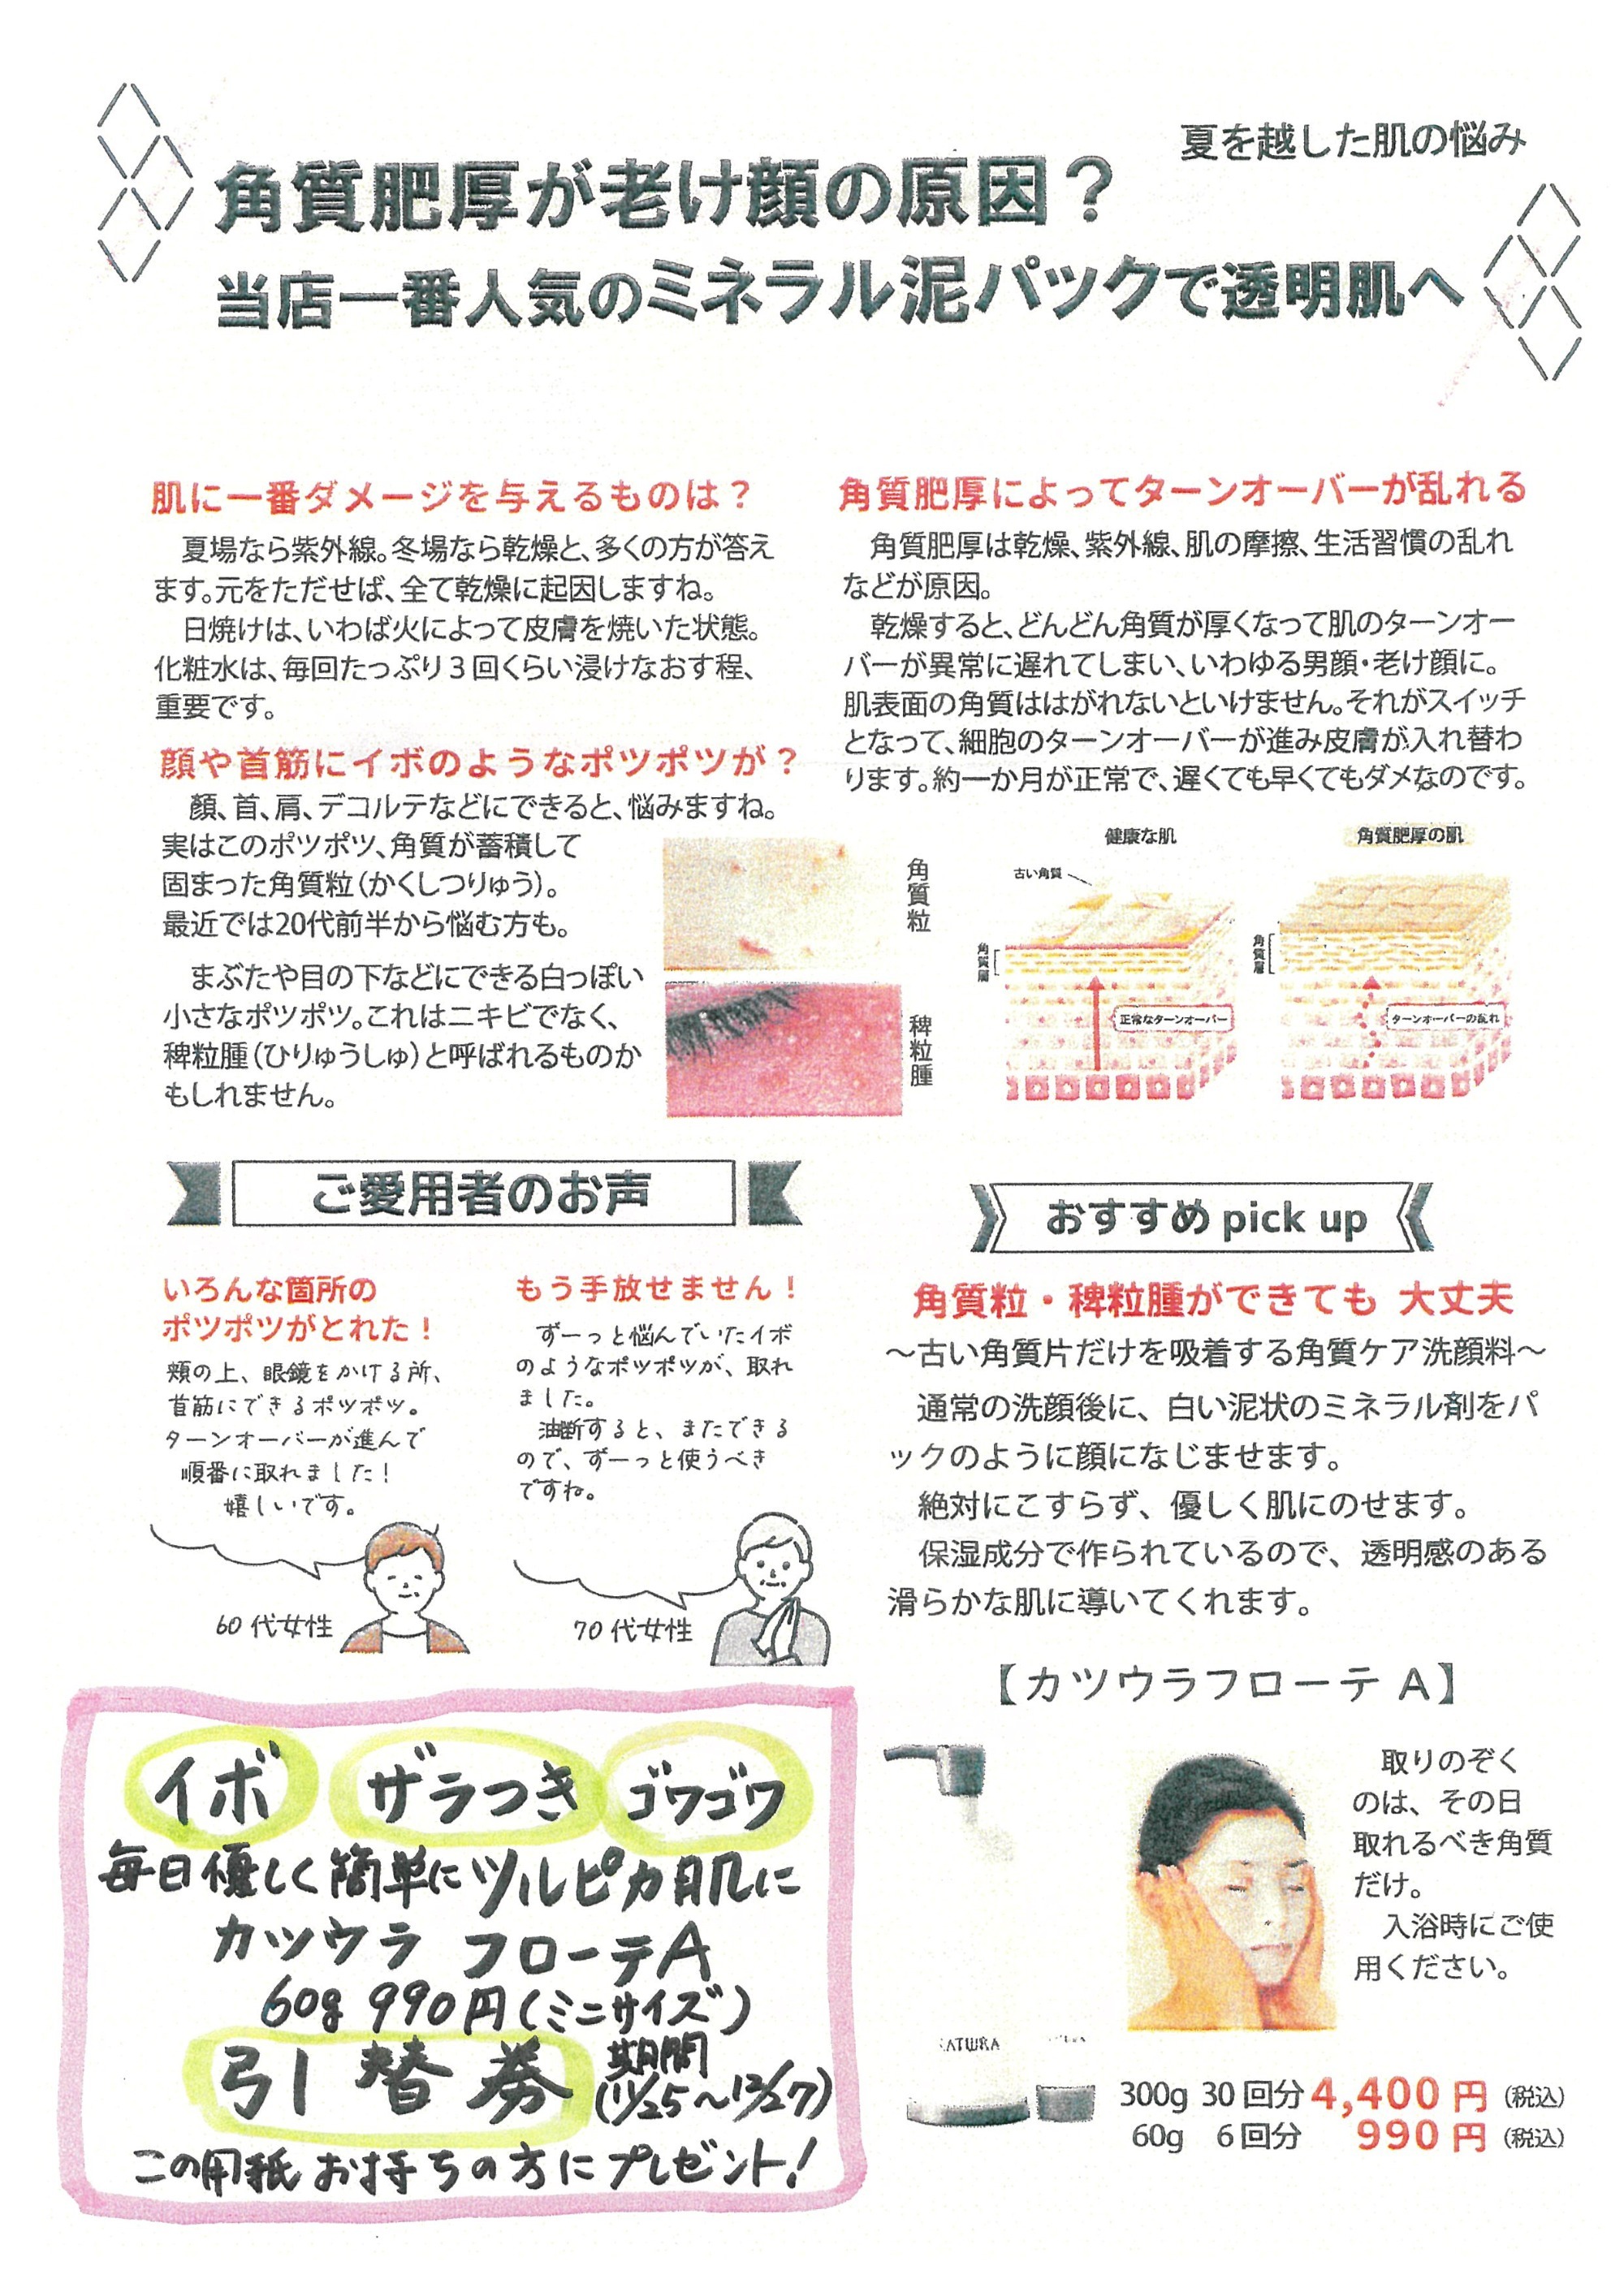 夏を越した肌の悩み
角質肥厚が老け顔の原因？
当店一番人気のミネラル泥パックで透明肌へ
肌に一番ダメージを与えるものは？
夏場なら紫外線。冬場なら乾燥と、多くの方が答え
ます。元をただせば、全て乾燥に起因しますね。
日焼けは、いわば火によって皮膚を焼いた状態。
化粧水は、毎回たっぷり３回くらい浸けなおす程、
重要です。
顔や首筋にイボのようなポツポツが？
顔、首、肩、デコルテなどにできると、悩みますね。
実はこのポツポツ、角質が蓄積して
固まった角質粒（かくしつりゅう）。
最近では20代前半から悩む方も。
まぶたや目の下などにできる白っぽい
小さなポツポツ。これはニキビでなく、
稗粒腫（ひりゅうしゅ）と呼ばれるものか
もしれません。
角質粒
稗粒腫
角質肥厚によってターンオーバーが乱れる
角質肥厚は乾燥、紫外線、肌の摩擦、生活習慣の乱れ
などが原因。
乾燥すると、どんどん角質が厚くなって肌のターンオー
バーが異常に遅れてしまい、いわゆる男顔・老け顔に。
肌表面の角質ははがれないといけません。それがスイッチ
となって、細胞のターンオーバーが進み皮膚が入れ替わ
ります。約一か月が正常で、遅くても早くてもダメなのです。
健康な肌
古い角質
角質層
正常なターンオーバー
角質肥厚の肌
角質層
ターンオーバーの乱れ
ご愛用者のお声
いろんな箇所の
ポツポツがとれた！
頬の上、眼鏡をかける所、
首筋にできるポツポツ。
ターンオーバーが進んで
順番に取れました！
嬉しいです。
60代女性
もう手放せません！
ずーっと悩んでいたイボ
のようなポツポツが、取れ
ました。
油断すると、またできる
ので、ずーっと使うべき
ですね。
70代女性
おすすめ pick up
角質粒・稗粒腫ができても 大丈夫
～古い角質片だけを吸着する角質ケア洗顔料～
通常の洗顔後に、白い泥状のミネラル剤をパ
ックのように顔になじませます。
絶対にこすらず、優しく肌にのせます。
保湿成分で作られているので、透明感のある
滑らかな肌に導いてくれます。
【カツウラフローテ A】
取りのぞく
のは、その日
取れるべき角質
だけ。
入浴時にご使
用ください。
300g 30回分 4,400円（税込）
60g 6回分 990円（税込）
イボ ザラつき ゴワゴワ
毎日優しく簡単にツルピカ肌に
カツウラ フローテA
60g 990円（ミニサイズ）
引替券 期間
（11/25～12/27）
この用紙お持ちの方にプレゼント！